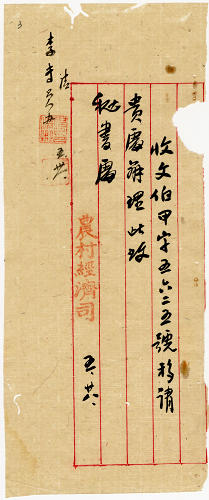 收文伯甲字五六二五號移請
貴處辦理此致
秘書處
農村經濟司
五 廿